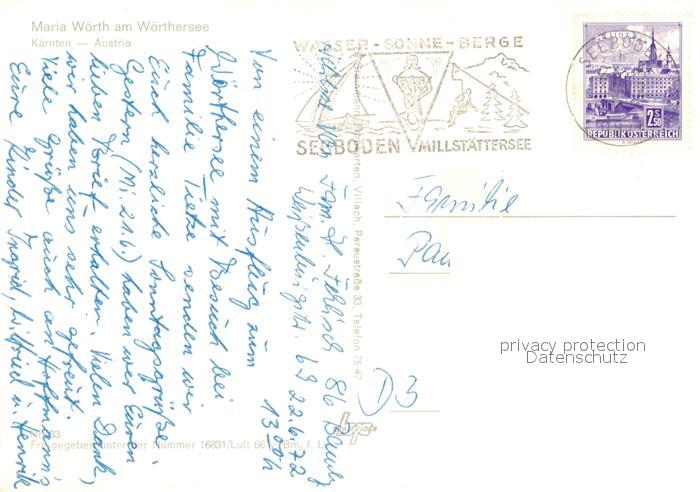 Maria Wörth am Wörthersee
Kärnten — Austria
WASSER - SONNE - BERGE
SEEBODEN MILLSTÄTTERSEE
SEEBODEN
2.50
REPUBLIK ÖSTERREICH
13.00h
Von einem Ausflug zum
Wörthersee mit Besuch bei
Familie Tietze senden wir
Euch herzliche Sonntagsgrüße.
Gestern (Mi. 21.6.) haben wir Euren
lieben Brief erhalten. Vielen Dank,
wir haben uns sehr gefreut.
Viele Grüße auch an Hoffmann's
Eure Kinder Ingrid, Wilfried u. Henrik
Fam. 86
69 22.6.72
Villach, Peraustraße 33, Telefon 75 47
Familie
Pau
D3
privacy protection
Datenschutz
Freigegeben unter der Nummer 16831/Luft 66 Bm. f. L.